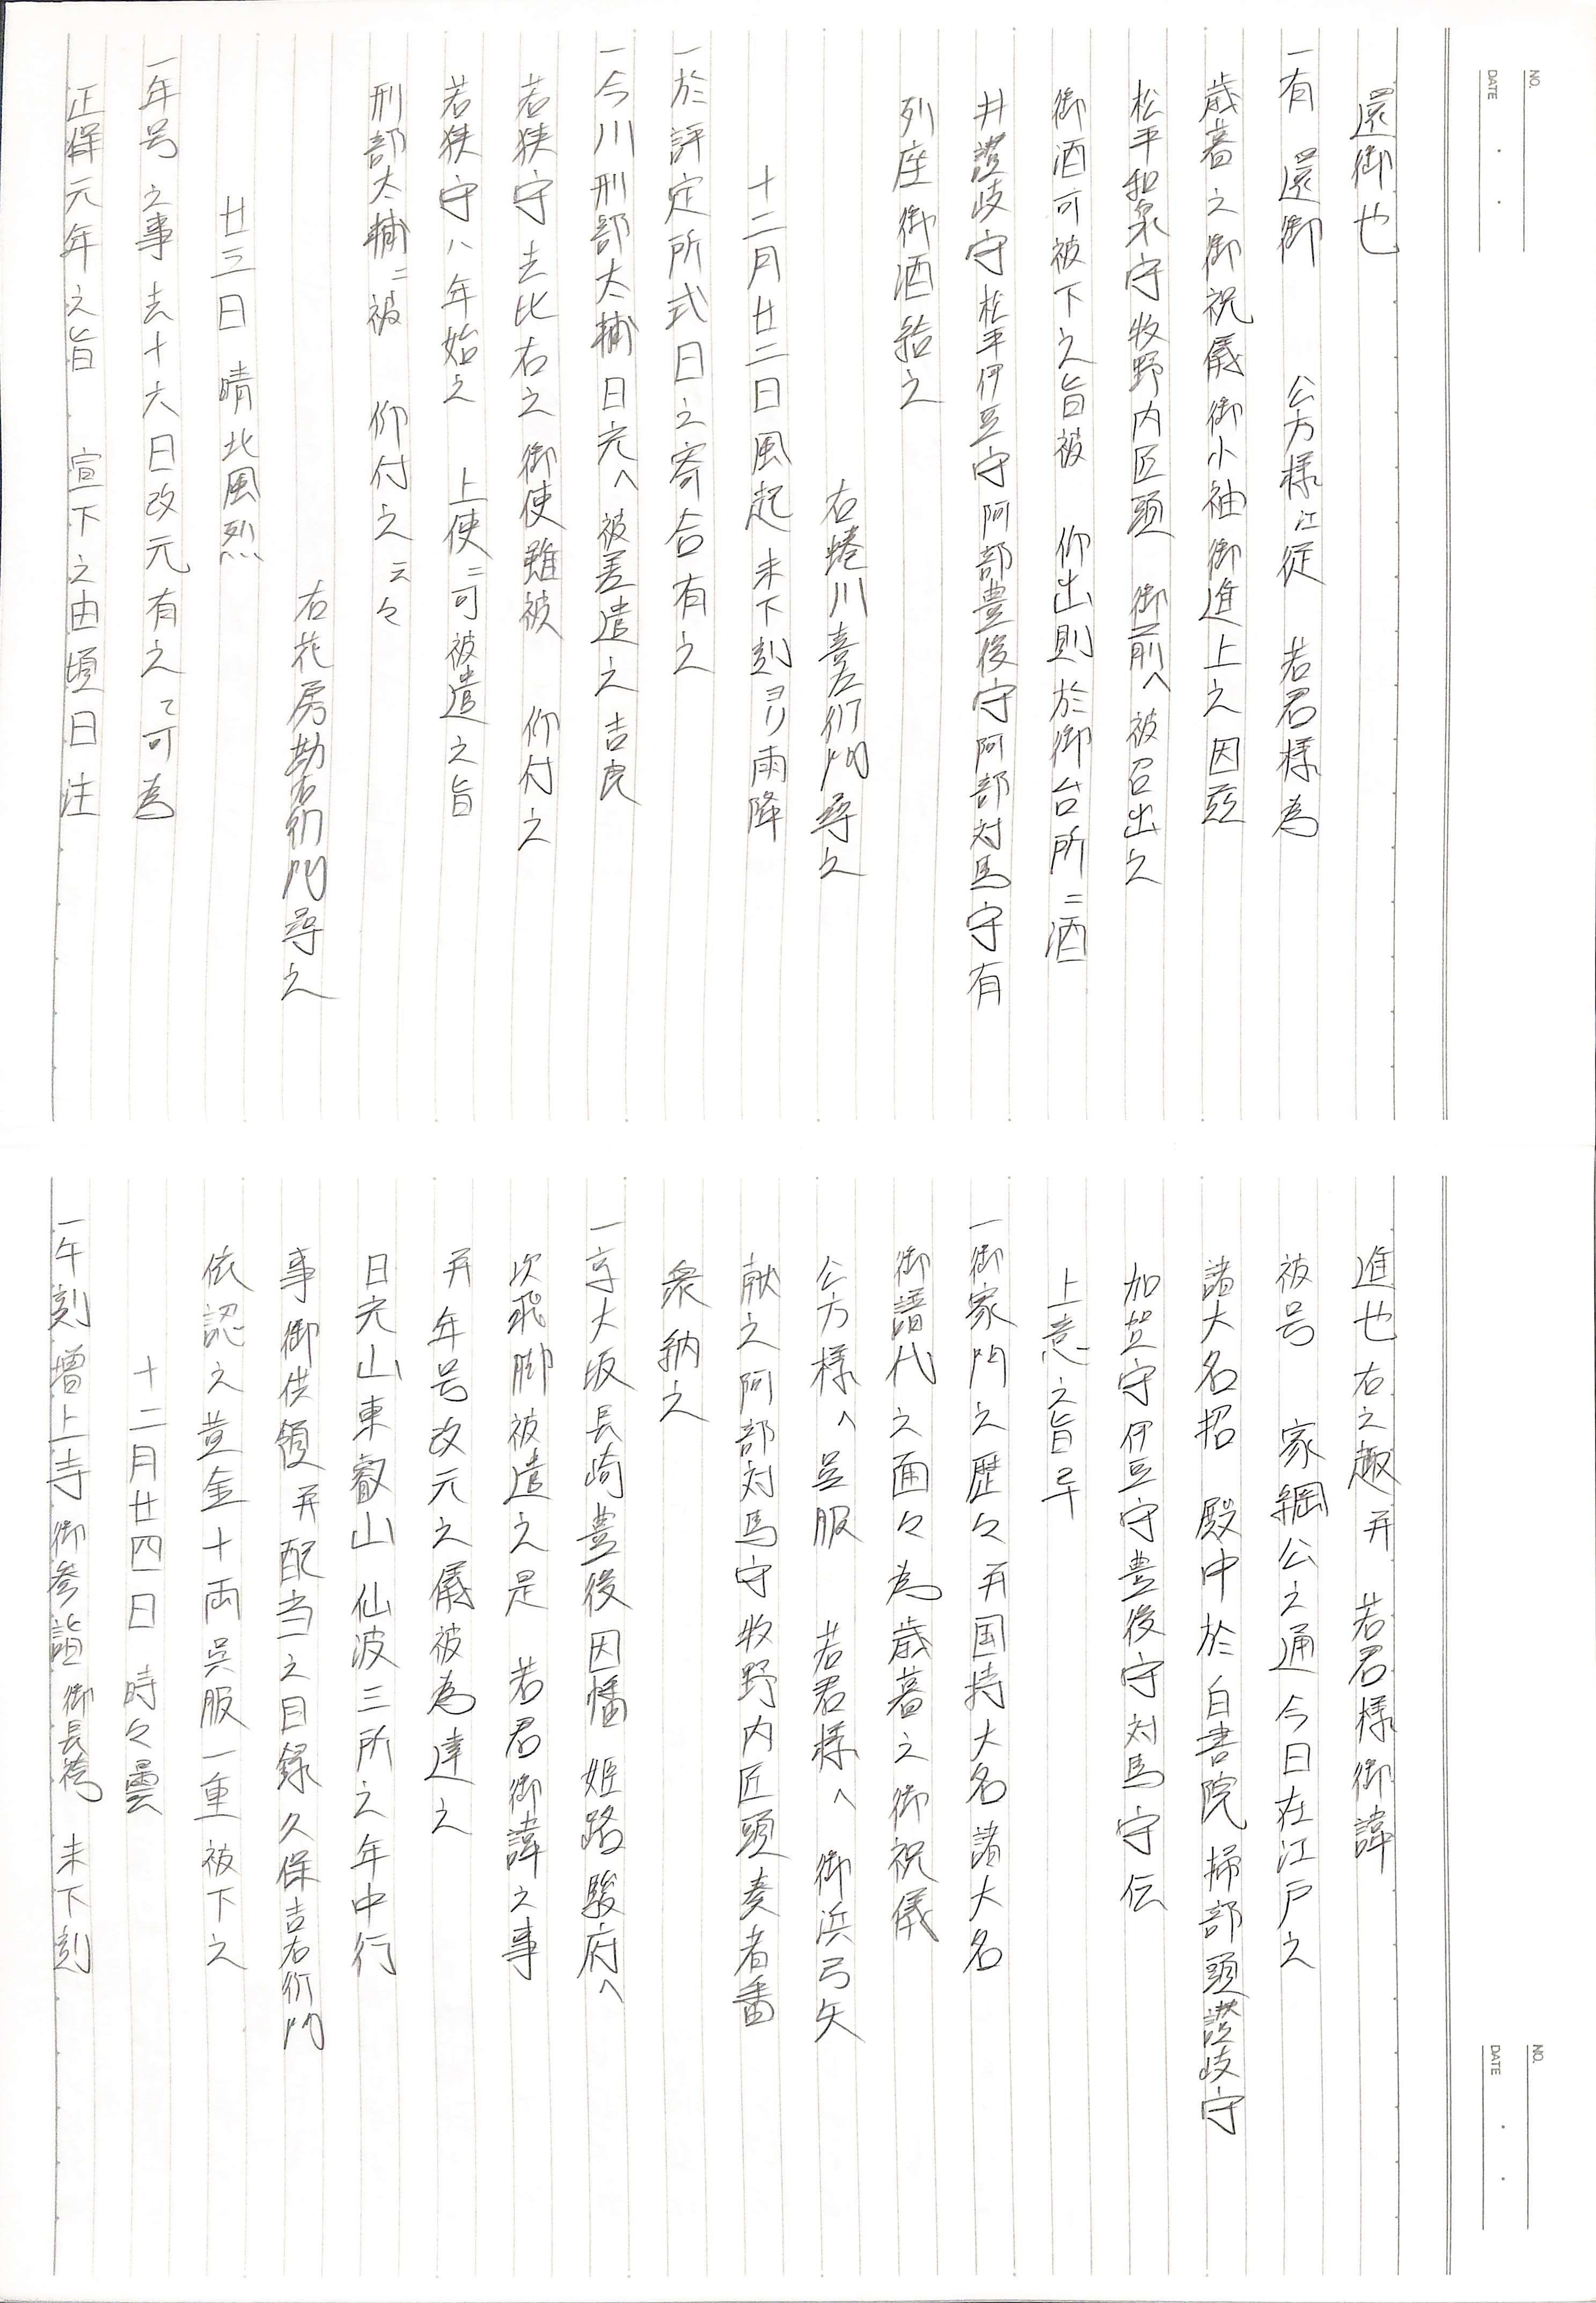 NO.
DATE
還御也
一有 還御 公方様江従 若君様為
歳暮之御祝儀御小袖御進上之因茲
松平和泉守牧野内匠頭 御前へ被召出之
御酒可被下之旨被 仰出則於御台所ニ酒
井讃岐守松平伊豆守阿部豊後守阿部対馬守有
列座御酒給之
右蜷川喜左衛門尋之
十二月廿二日風起未下刻ヨリ雨降
一於評定所式日之寄合有之
一今川刑部太輔日光へ被差遣之吉良
若狭守去比右之 御使雖被 仰付之
若狭守ハ年始之 上使ニ可被遣之旨
刑部太輔ニ被 仰付之云々
右花房勘右衛門尋之
廿三日 晴北風烈
一年号之事去十六日改元有之て可為
正保元年之旨 宣下之由頃日注
NO.
DATE
進也右之趣并 若君様御諱
被号 家綱公之通今日在江戸之
諸大名招 殿中於白書院掃部頭讃岐守
加賀守伊豆守豊後守対馬守伝
上意之旨早
一御家門之歴々并国持大名諸大名
御譜代之面々為歳暮之御祝儀
公方様へ呉服 若君様へ 御浜弓矢
献之阿部対馬守牧野内匠頭奏者番
衆納之
一京大坂長崎豊後因幡姫路駿府へ
次飛脚被遣之是 若君御諱之事
并年号改元之儀被為達之
日光山東叡山仙波三所之年中行
事御供領并配当之目録久保吉右衛門
依認之黄金十両呉服一重被下之
十二月廿四日 時々曇
一午刻増上寺御参詣御長袴 未下刻